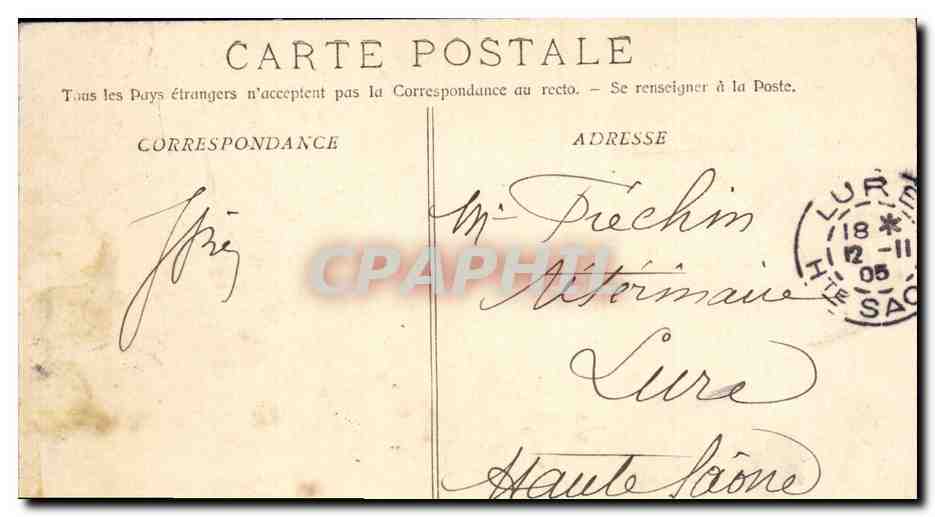 CARTE POSTALE
Tous les Pays étrangers n'acceptent pas la Correspondance au recto. - Se renseigner à la Poste.
CORRESPONDANCE
ADRESSE
Mr Piéchin
Vétérinaire
Lure
Haute Saône
LURE
18 *
12 -11
05
Hte SAO
CPAPHIL